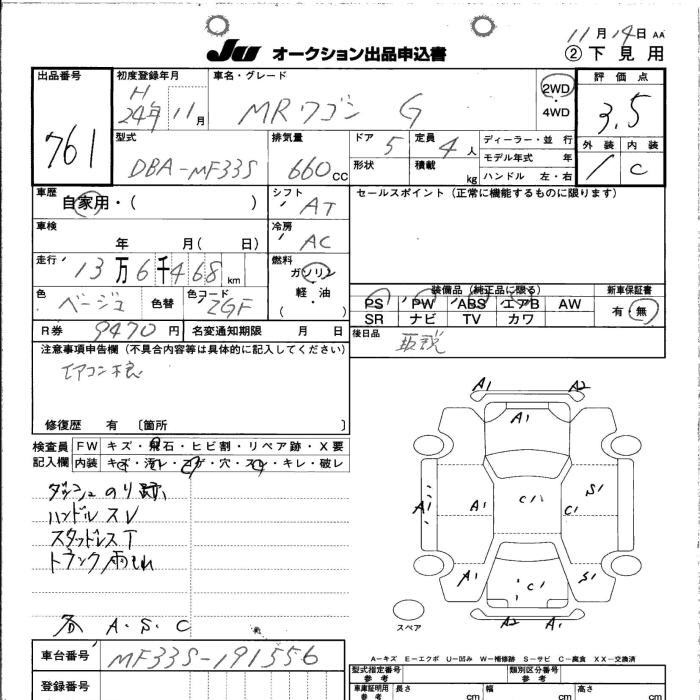 11月14日 AA
JU オークション出品申込書 ②下見用
出品番号 初度登録年月 車名・グレード 2WD 評価点
761 H 24年 11月 MRワゴン G 4WD 3.5
型式 排気量 ドア 5 定員 4人 ディーラー・並 行 外装 内装
DBA-MF33S 660cc 形状 積載 kg モデル年式 年 1 C
ハンドル 左・右
車歴 シフト セールスポイント (正常に機能するものに限ります)
自家用・( ) AT
車検 冷房
年 月( 日) AC
走行 13万6千468km 燃料
ガソリン
色 ベージュ 色替 色コード ZGF 軽・油
( ・ )
装備品 (純正品に限る) 新車保証書
PS PW ABS エアB AW 有・無
SR ナビ TV カワ
R券 9470円 名変通知期限 月 日
後日品 取説
注意事項申告欄 (不具合内容等は具体的に記入してください)
エアコン不良
修復歴 有 〔箇所 〕
検査員 FW キズ・飛石・ヒビ割・リペア跡・X要
記入欄 内装 キズ・汚レ・コゲ・穴・スレ・キレ・破レ
ダッシュのり跡
ハンドルスレ
スタッドレスT
トランク雨もれ
各 A.S.C
A1 A2
A1
A1 A1 C1 C1 S1
A1 C1 S1
A2 A1
スペア
A-キズ E-エクボ U-凹み W-補修跡 S-サビ C-腐食 XX-交換済
車台番号 MF33S-191556
登録番号
型式指定番号 参考 類別区分番号 参考
車庫証明用 参考 長さ cm 幅 cm 高さ cm